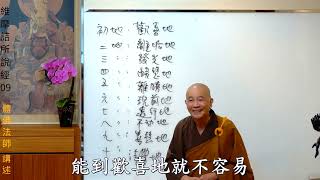 維摩詰所說經09
體迅法師 講述
初地:歡喜地
二地:離垢地
三〃:發光地
四〃:焰慧地
五〃:難勝地
六〃:現前地
七〃:遠行地
八〃:不動地
九〃:善慧地
能到歡喜地就不容易